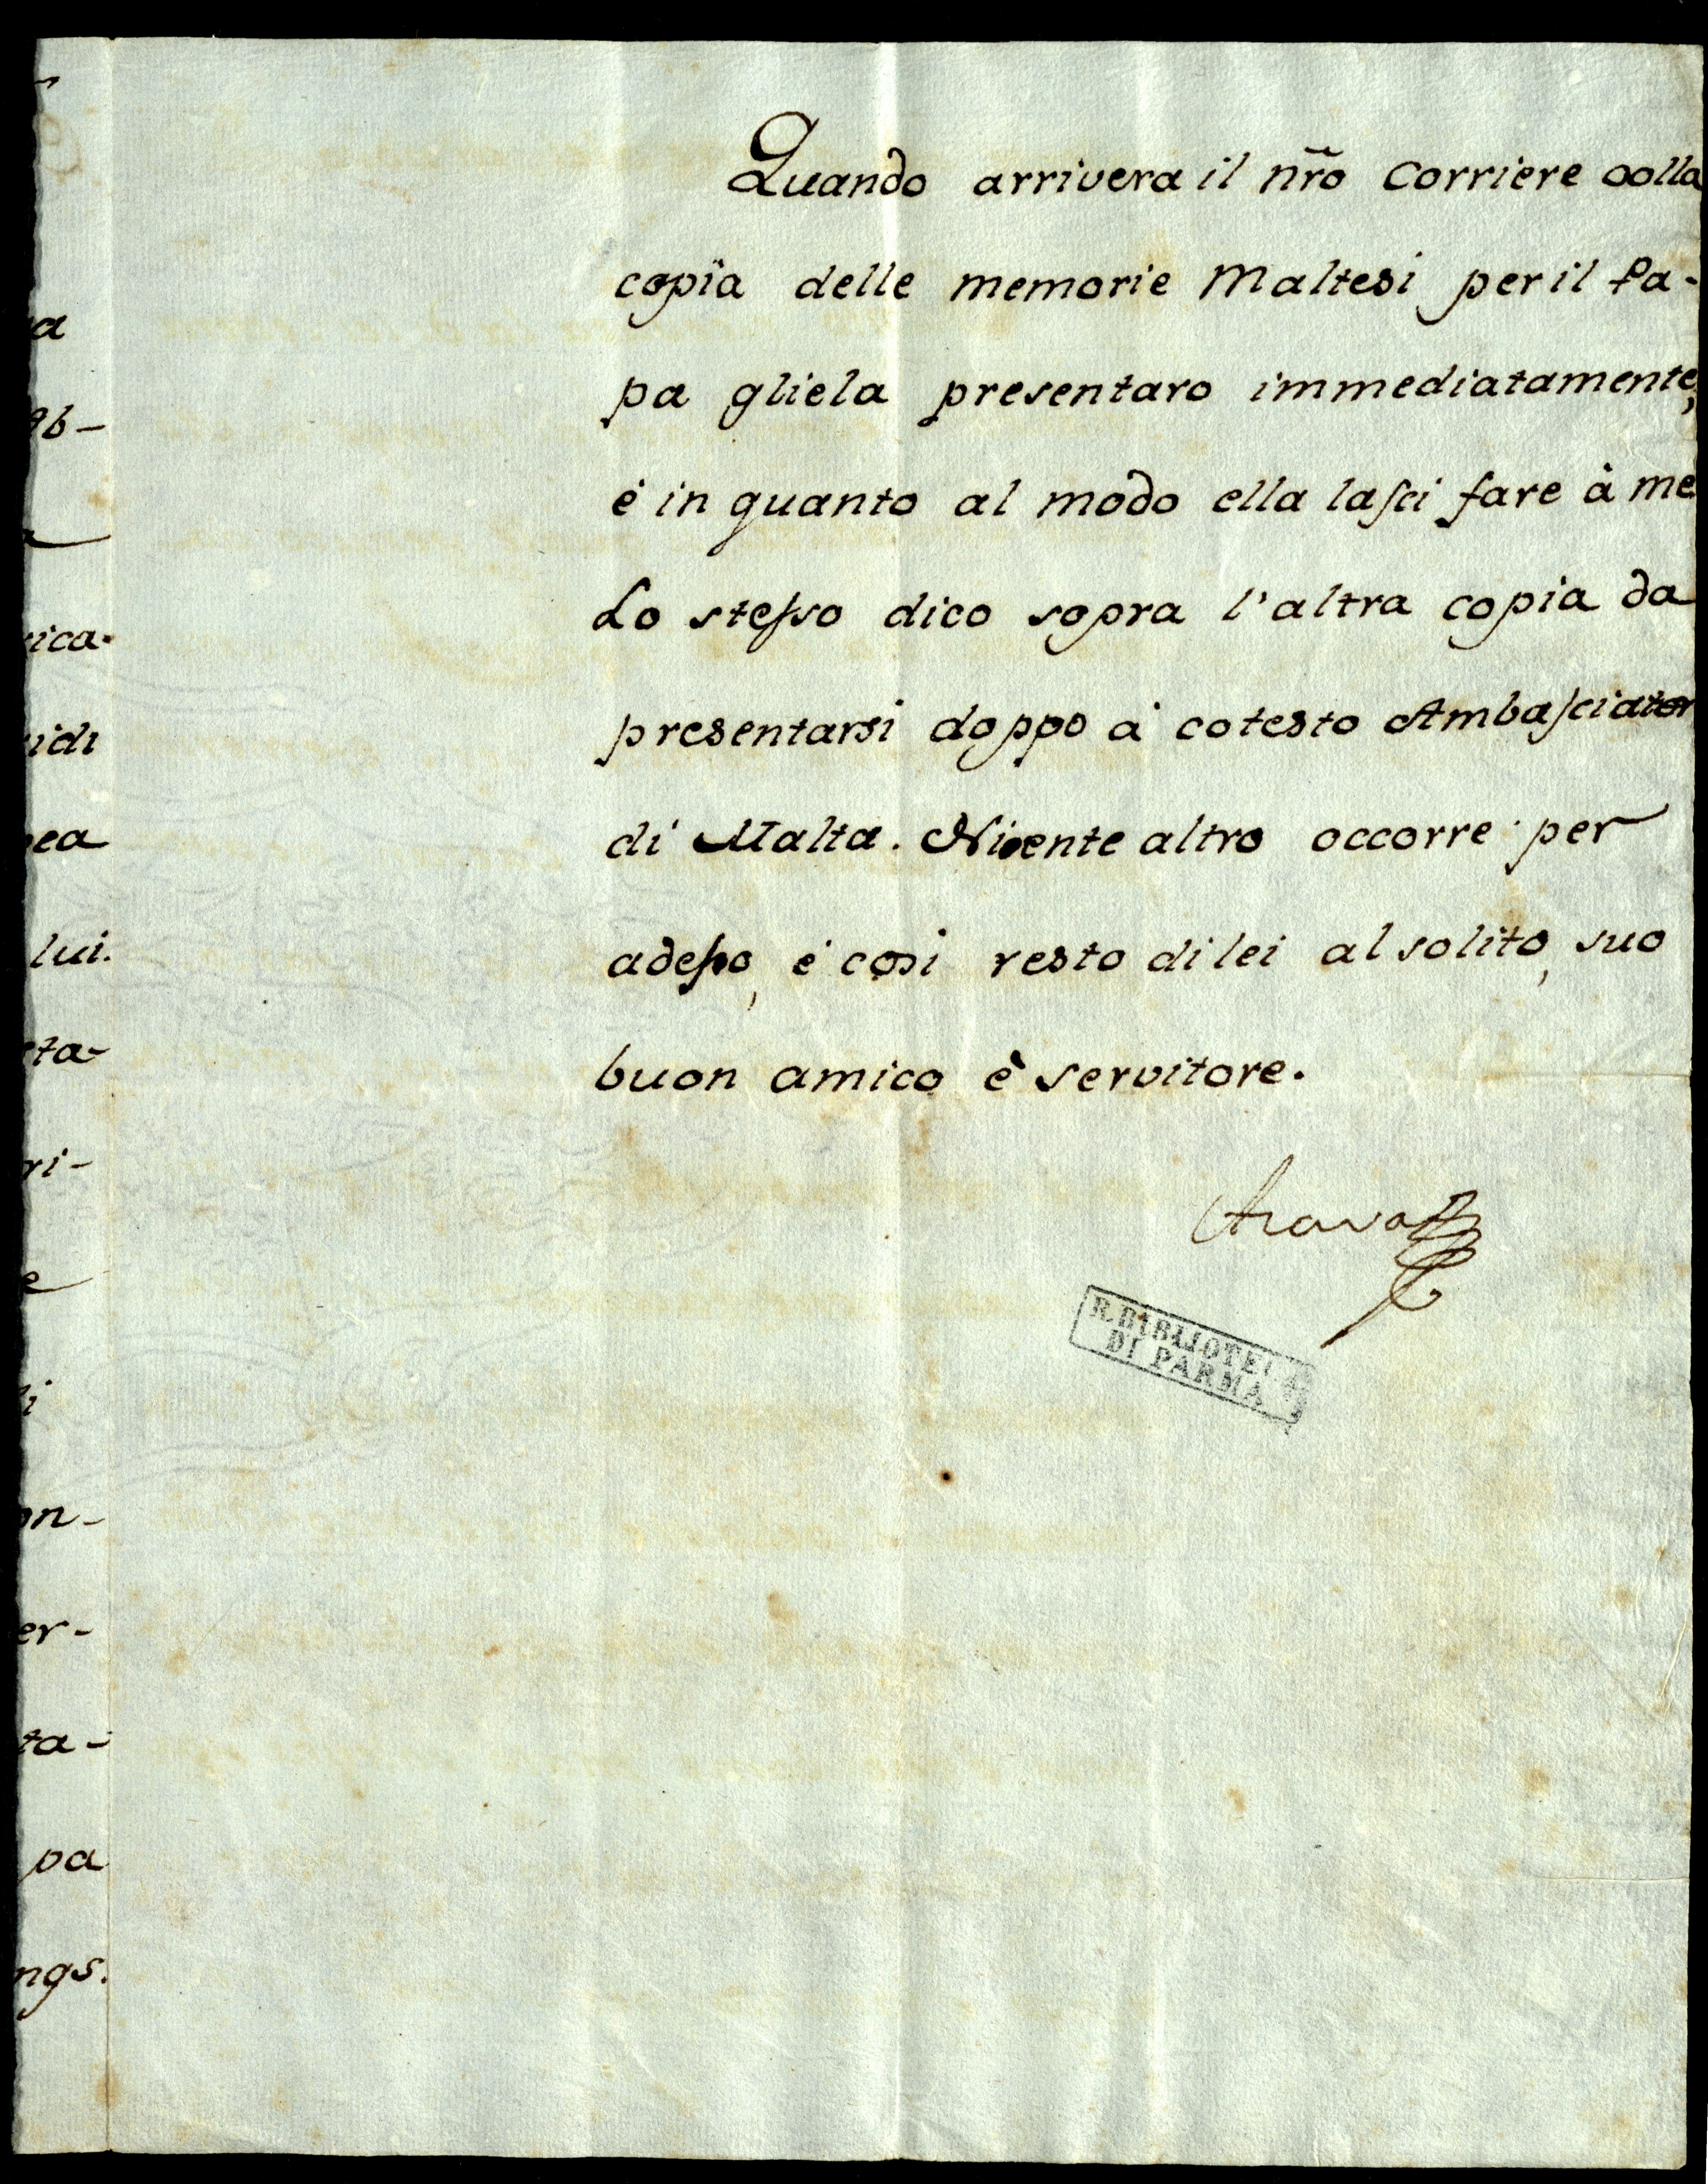 Quando arrivera il nr̃o Corriere colla
copia delle memorie Maltesi per il Pa-
pa gliela presentaro immediatamente,
è in quanto al modo ella lasci fare à me
Lo stesso dico sopra l'altra copia da
presentarsi doppo à cotesto Ambasciator
di Malta. Niente altro occorre per
adesso, è cosi resto di lei al solito, suo
buon amico è servitore.
R. BIBLIOTECA
DI PARMA
a
ab-
ica-
idi
ea
lui.
ta-
ri-
e
i
on-
er-
ta-
pa
ngs.